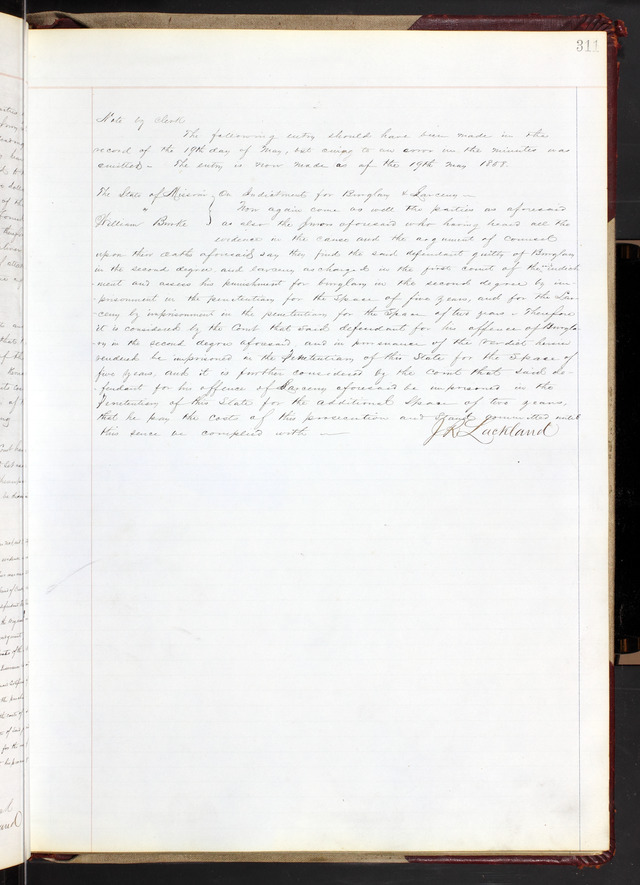 311
Note by Clerk
The following entry should have been made in the
record of the 19th day of May, but owing to an error in the minutes was
omitted - The entry is now made as of the 19th May 1858
The State of Missouri } On Indictment for Burglary & Larceny -
" Now again come as well the parties as aforesaid
William Burke } as also the Juron aforesaid who having heard all the
evidence in the cause and the argument of counsel
upon their oaths aforesaid say they find the said defendant guilty of Burglary
in the second degree and larceny as charged in the first count of the Indict-
ment and assess his punishment for burglary in the second degree by im-
prisonment in the penitentiary for the Space of five years, and for the Lar-
ceny by imprisonment in the penitentiary for the Space of two years - Therefore
it is considered by the Court that said defendant for his offence of Burgla-
ry in the second degree aforesaid, and in pursuance of the verdict herein
rendered be imprisoned in the Penitentiary of this State for the Space of
five years, and it is further considered by the Court that said de-
fendant for his offence of Larceny aforesaid be imprisoned in the
Penitentiary of this State for the additional Space of two years,
that he pay the costs of this prosecution and Stand committed until
this sence be complied with - J R Lackland